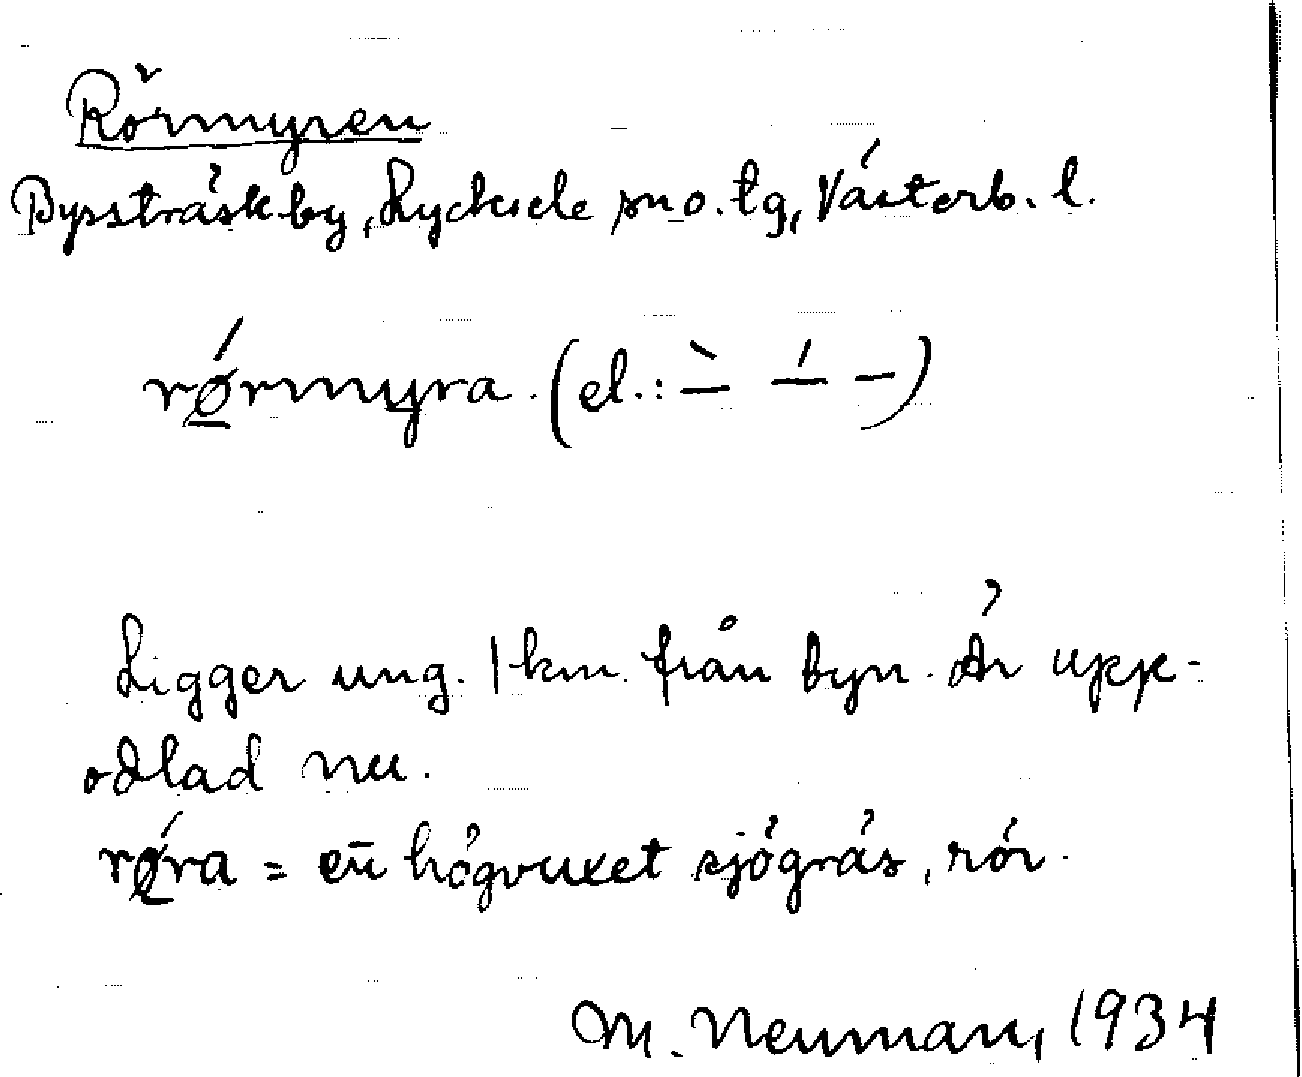 Rörmyren
Bysträsk by, Lycksele sn o. tg, Västerb. l.
rǿrmyra. (el.: ̀– ́– –)
Ligger ung. 1 km. från byn. Är upp-
odlad nu.
rǿra = ett högvuxet sjögräs, rör.
M. Neuman, 1934